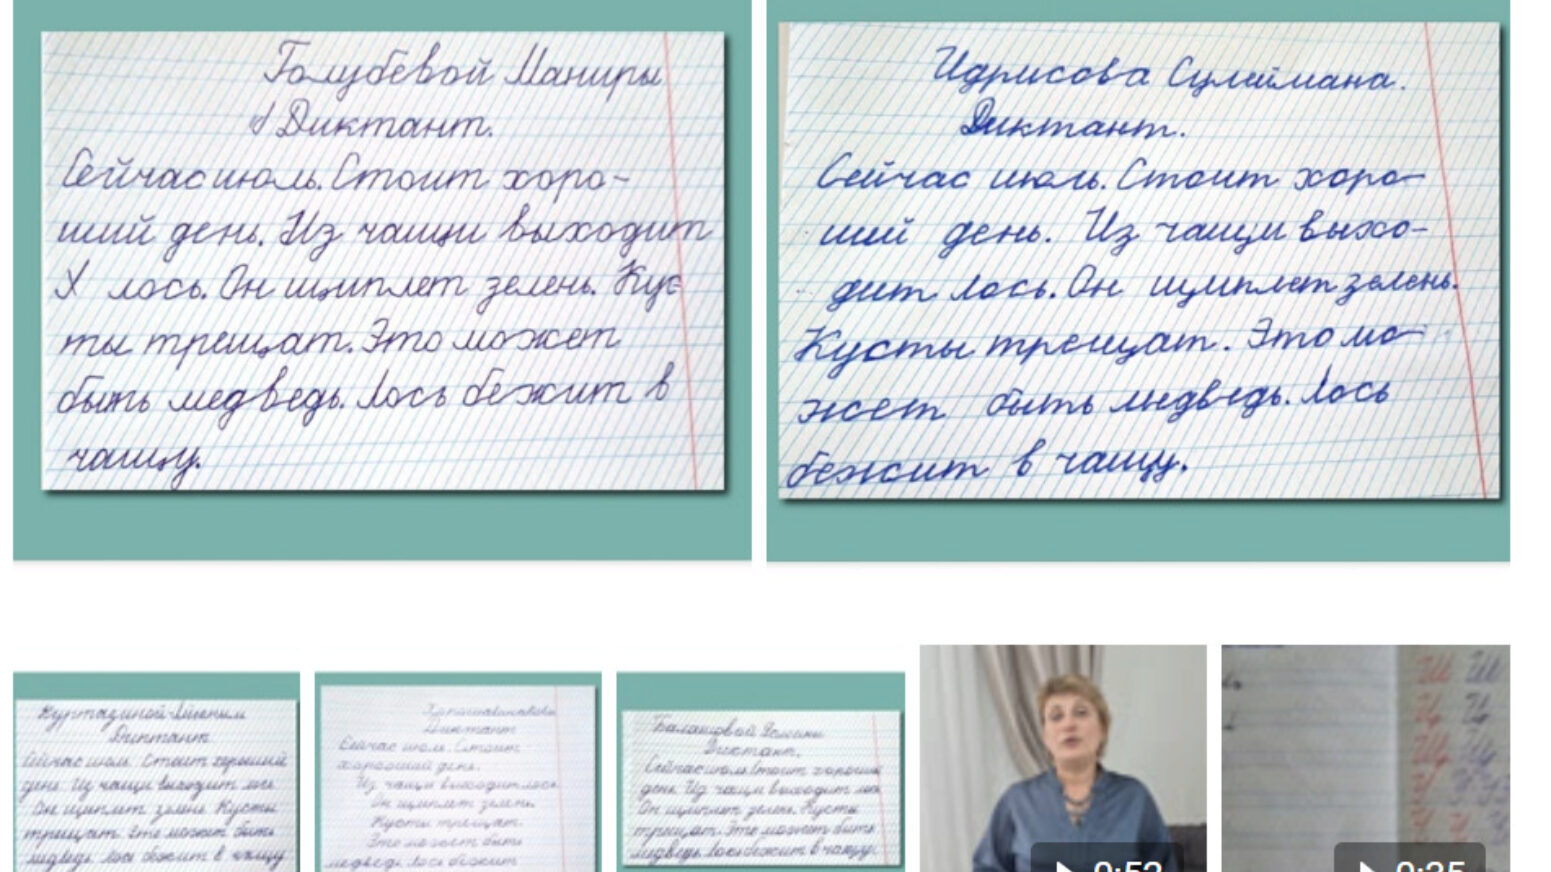 Голубевой Маниры
Диктант.
Сейчас июль. Стоит хоро-
ший день. Из чащи выходит
лось. Он щиплет зелень. Кус-
ты трещат. Это может
быть медведь. Лось бежит в
чащу.
Идрисова Сулеймана.
Диктант.
Сейчас июль. Стоит хоро-
ший день. Из чащи выхо-
дит лось. Он щиплет зелень.
Кусты трещат. Это мо-
жет быть медведь. Лось
бежит в чащу.
Диктант
Сейчас июль. Стоит хороший
день. Из чащи выходит лось.
Он щиплет зелень. Кусты
трещат. Это может быть
медведь. Лось бежит в чащу
Диктант
Сейчас июль. Стоит
хороший день.
Из чащи выходит лось
Он щиплет зелень.
Кусты трещат.
Это может быть
медведь. Лось бежит
Балашовой
Диктант.
Сейчас июль. Стоит хороший
день. Из чащи выходит лось
Он щиплет зелень. Кусты
трещат. Это может быть
медведь. Лось бежит в чащу.
0:52
0:35